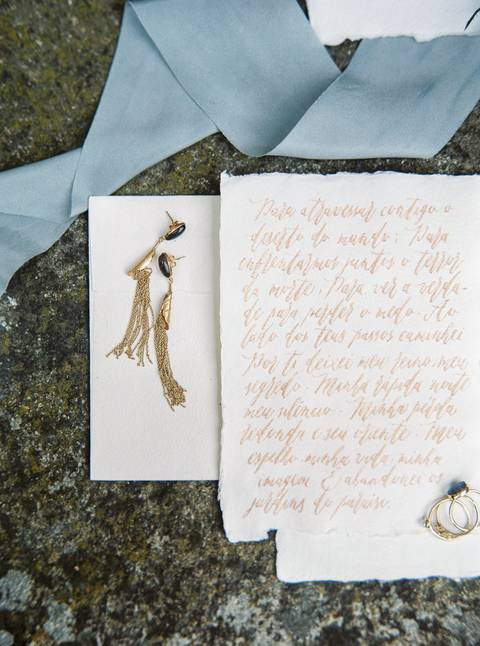 Para atravessar contigo o
deserto do mundo; Para
enfrentarmos juntos o terror
da morte; Para ver a verda-
de para perder o medo. Ao
lado dos teus passos caminhei
Por ti deixei meu reino meu
segredo. Minha rápida noite
meu silêncio. Minha pérola
redonda e seu oriente. Meu
espelho minha vida, minha
imagem & abandonei os
jardins do paraíso.